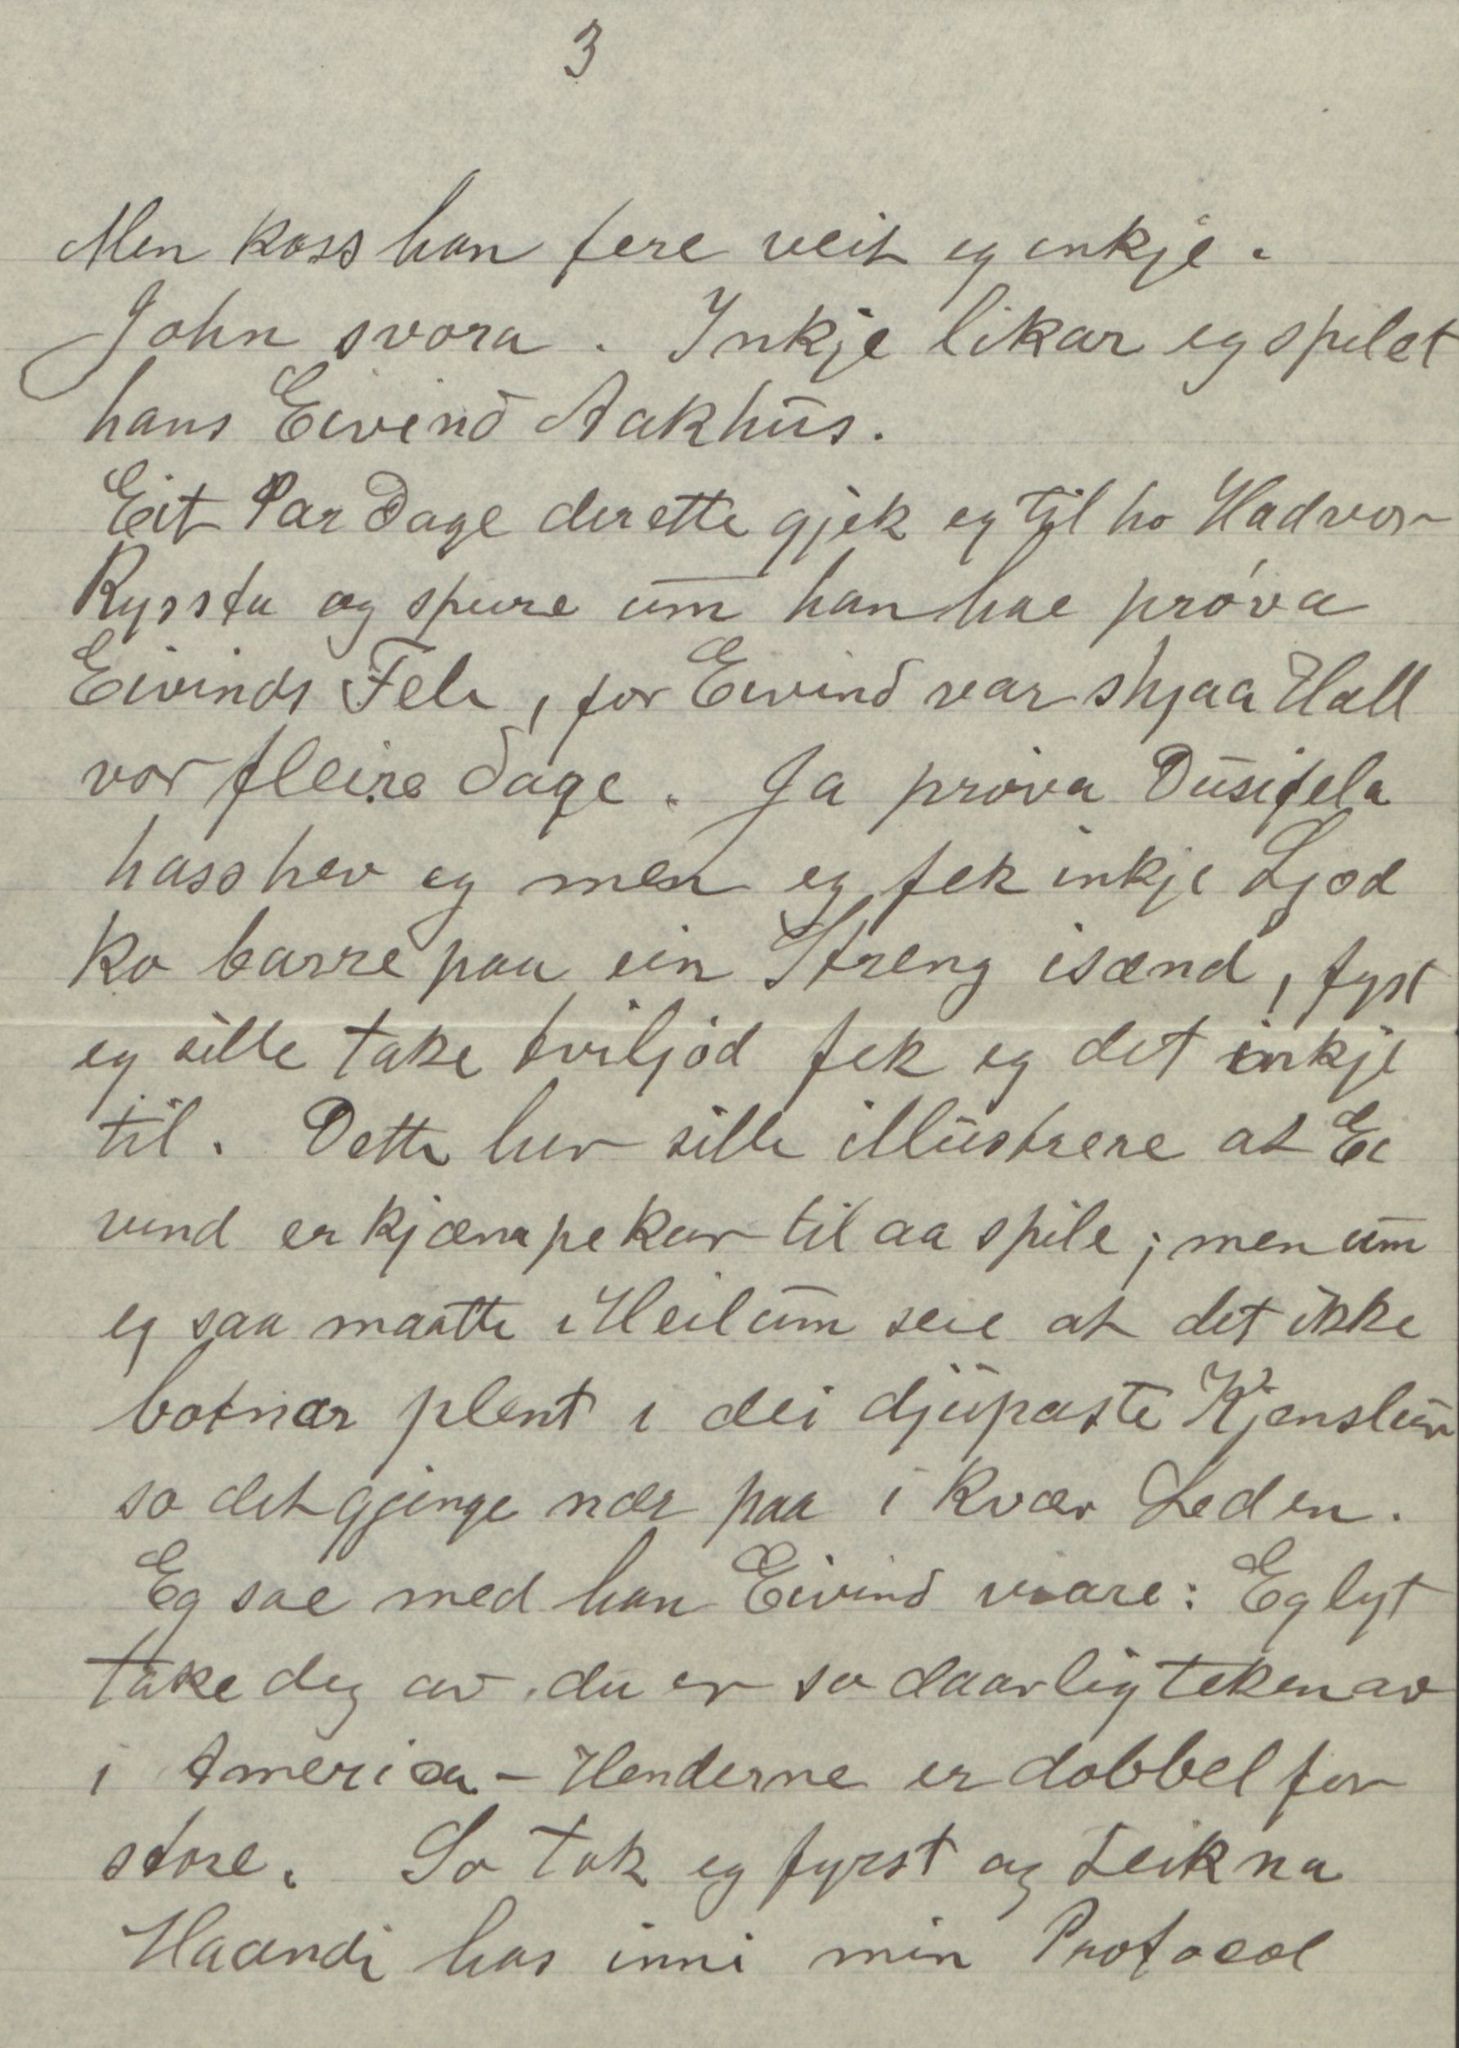 3
Men koss han fere veit eg inkje.
John svora. Inkje likar eg spilet
hans Eivind Aakhus.
Eit Par Dage derette gjek eg til ho Hadvor
Ryssta og spure um han hae prøva
Eivinds Fele, for Eivind var skjaa Hall
vor fleire Dage. Ja prøva Dusifela
hass hev eg men eg fek inkje Ljod
ko barre paa ein Streng isænd, fyst
eg sille take tviljód fek eg det inkje
til. Dette her sille illustrere at Ei
vind er kjæmpekar til aa spile; men um
eg saa maatte i Heilum seie at det ikke
botnar plent i dei djupaste Kjenslun
so det gjenge nær paa i kvær Leden.
Eg sae med han Eivind viare: Eg lyt
take deg av, du er so daarlig teken av
i America – Henderne er dobbel for
store. So tok eg fyrst og teikna
Haandi has inni min Protocol